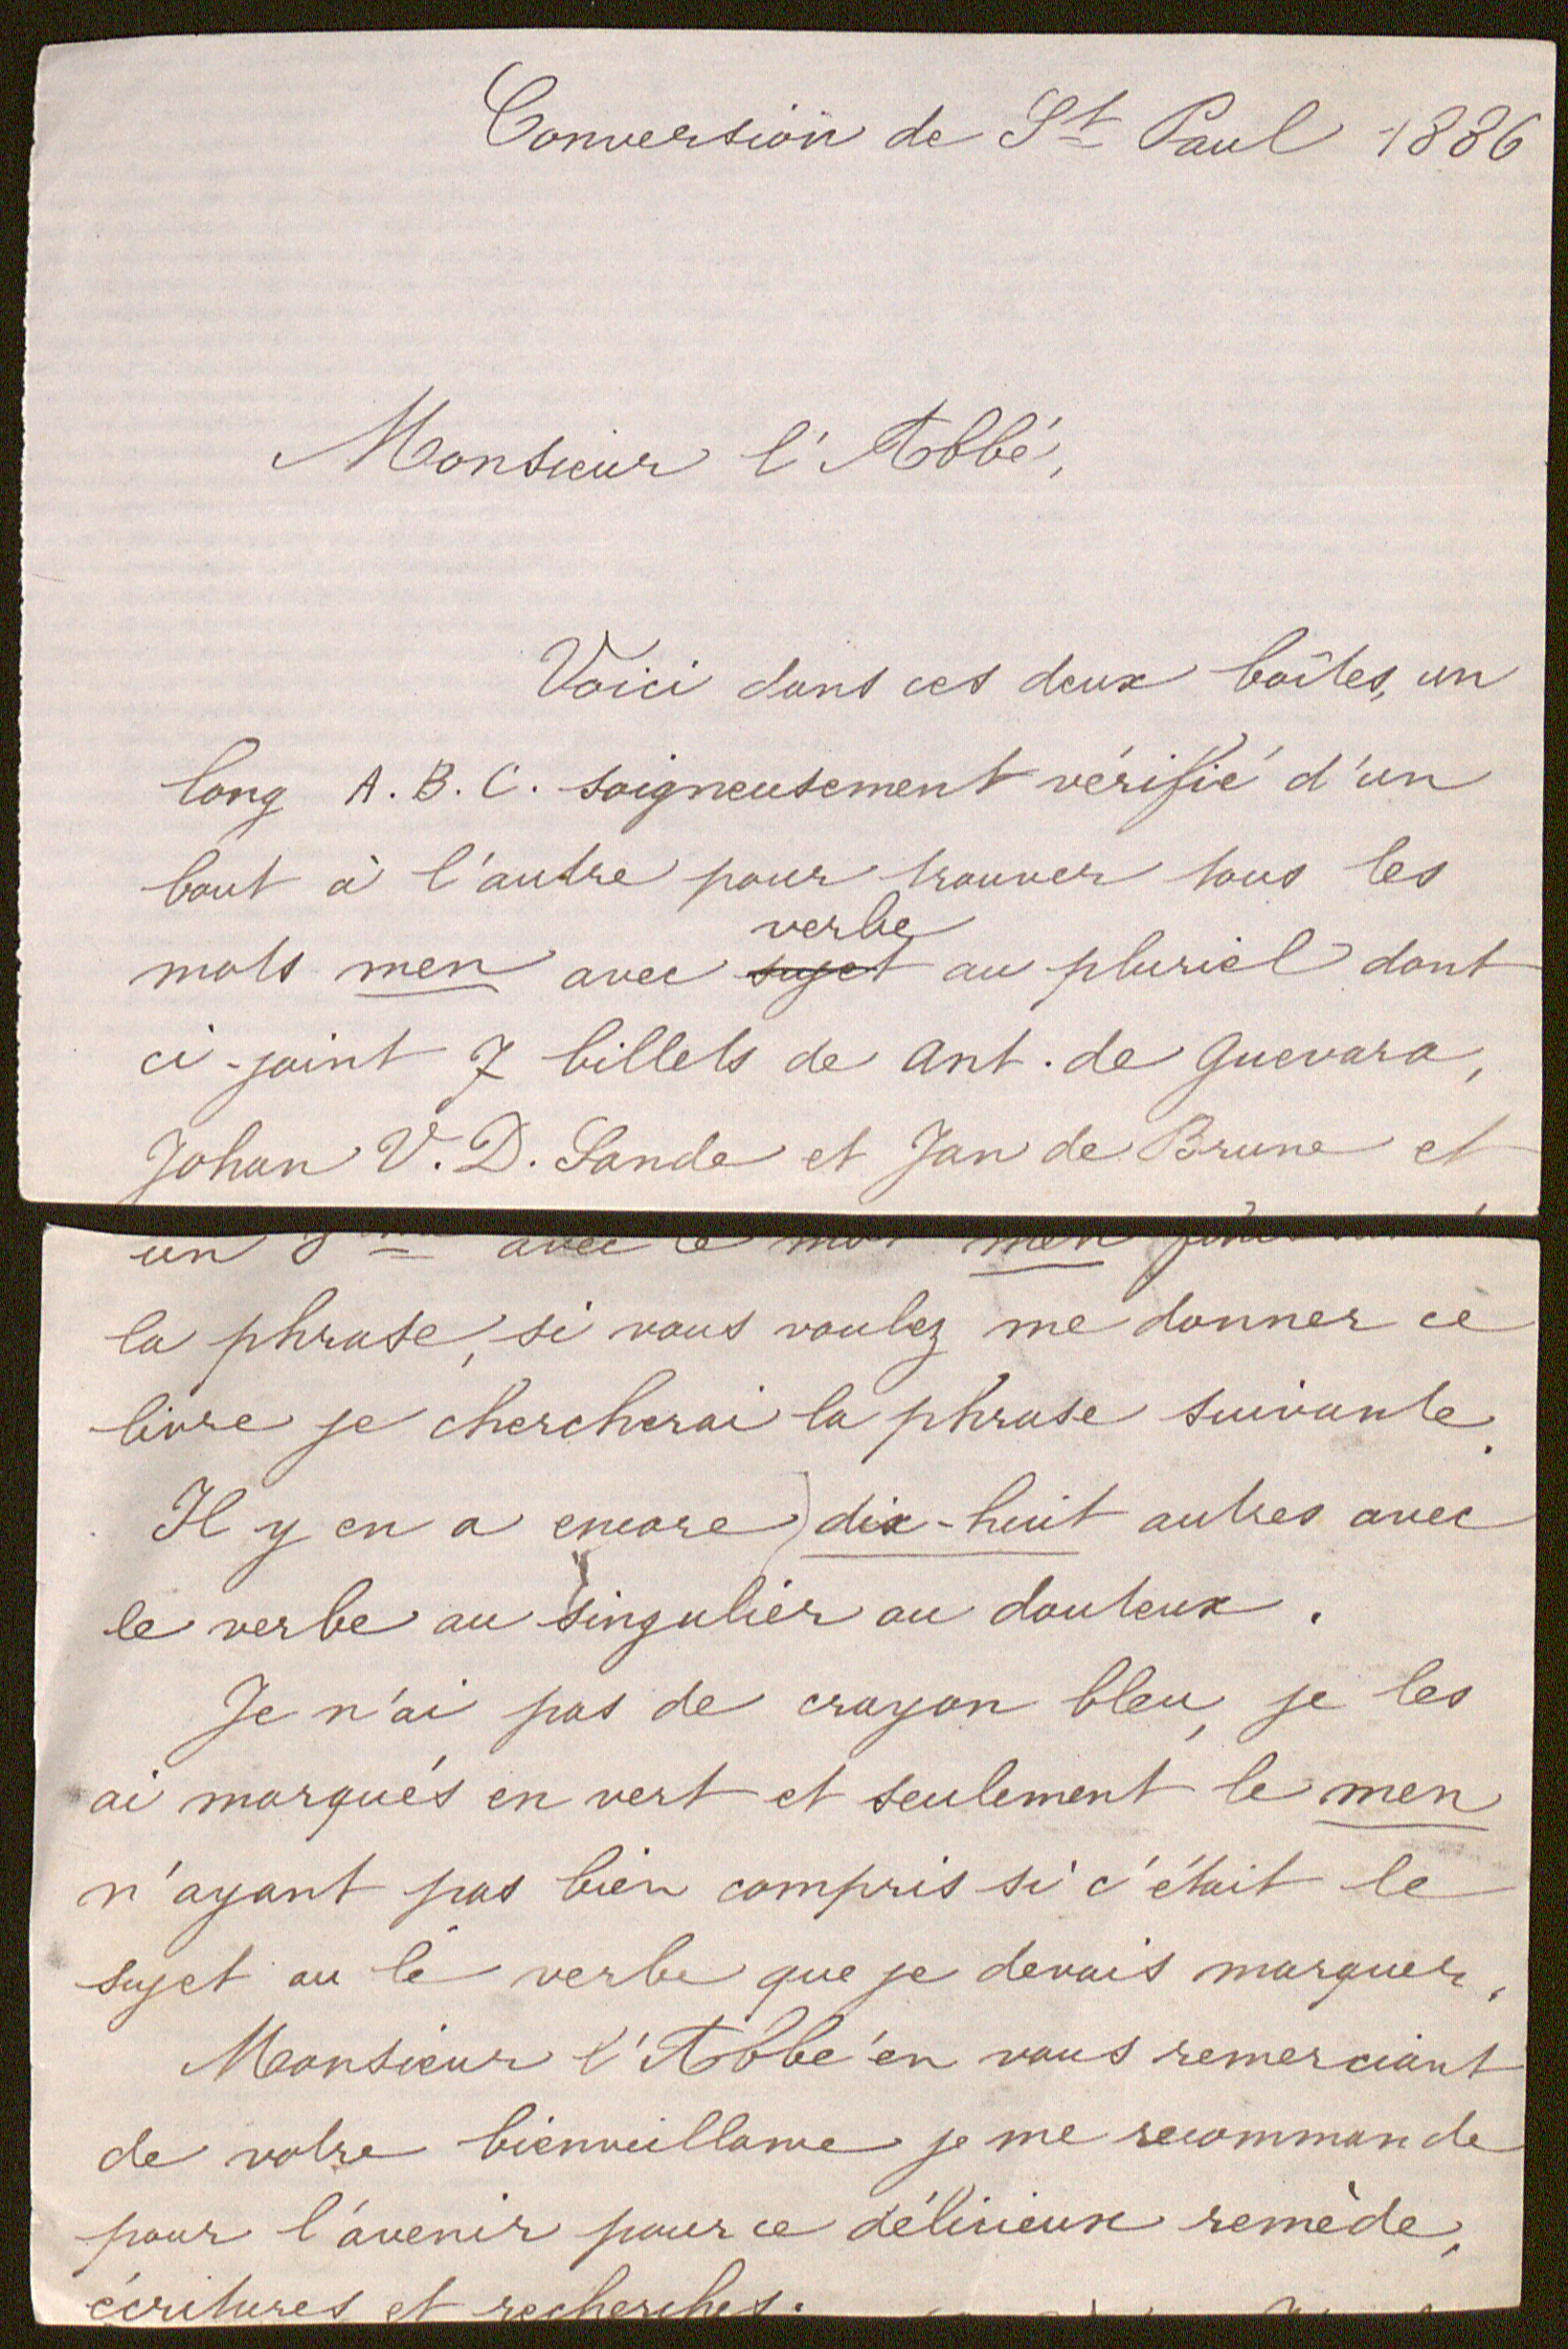 Conversion de St Paul 1886
Monsieur l'Abbé,
Voici dans ces deux boîtes, un
long A.B.C. soigneusement vérifié d'un
bout à l'autre pour trouver tous les
verbe
mots men avec sujet au pluriel dont
ci-joint 7 billets de Ant. de Guevara,
Johan V.D. Sande et Jan de Brune et
un 8me avec le mot men
la phrase, si vous voulez me donner ce
livre je chercherai la phrase suivante.
Il y en a encore dix-huit autres avec
le verbe au singulier ou douteux.
Je n'ai pas de crayon bleu, je les
ai marqués en vert et seulement le men
n'ayant pas bien compris si c'était le
sujet ou le verbe que je devais marquer.
Monsieur l'Abbé en vous remerciant
de votre bienveillance je me recommande
pour l'avenir pour ce délicieux remède,
écritures et recherches.